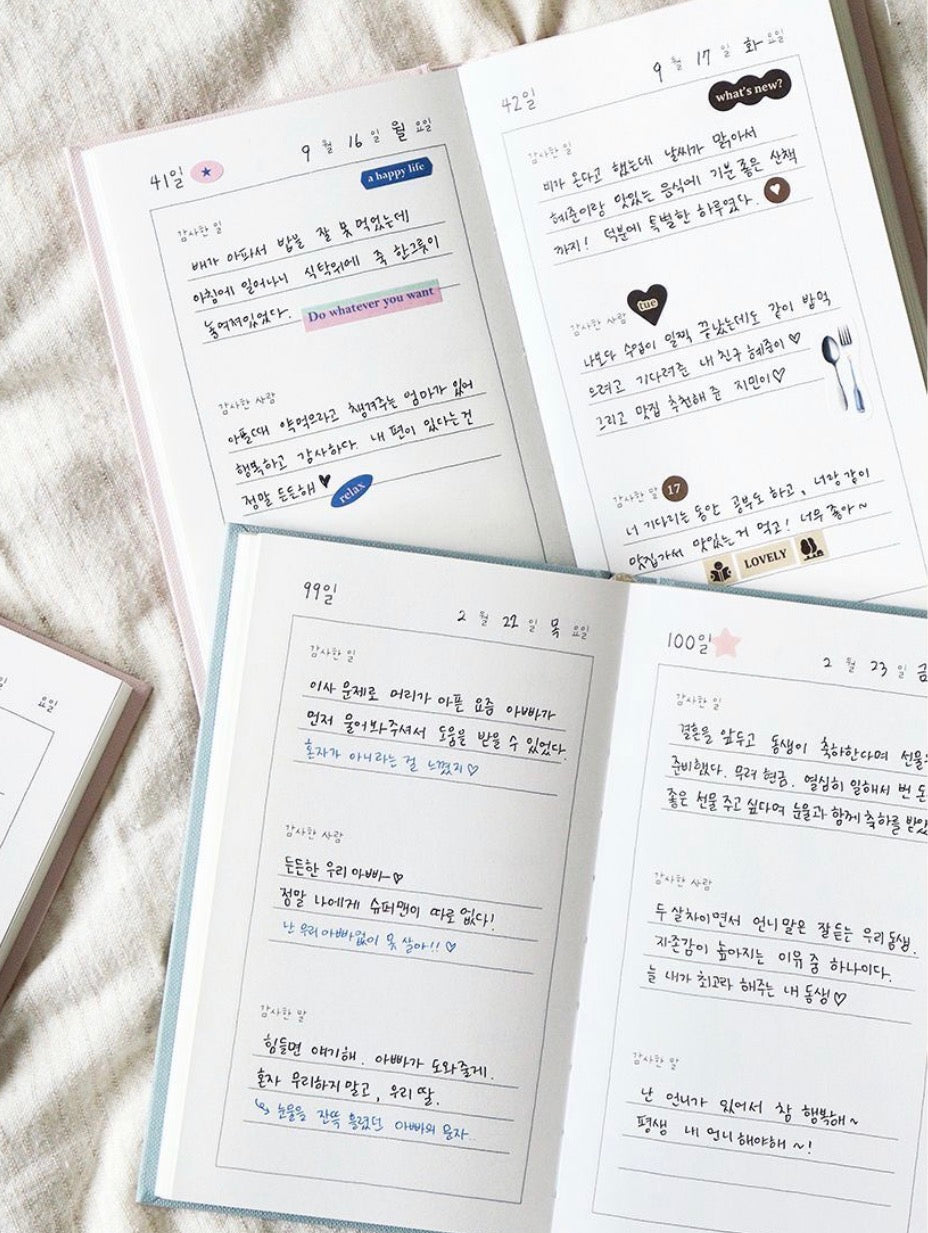 41일 ★
9 월 16 일 월 요일
a happy life
감사한 일
배가 아파서 밥을 잘 못 먹었는데
아침에 일어나니 식탁위에 죽 한그릇이
놓여져있었다.
Do whatever you want
감사한 사람
아플때 약먹으라고 챙겨주는 엄마가 있어
행복하고 감사하다. 내 편이 있다는건
정말 든든해 ♥
relax
42일
9 월 17 일 화 요일
what's new?
감사한 일
비가 온다고 했는데 날씨가 맑아서
혜준이랑 맛있는 음식에 기분 좋은 산책
까지! 덕분에 특별한 하루였다.
tue
감사한 사람
나보다 수업이 일찍 끝났는데도 같이 밥먹
으려고 기다려준 내 친구 혜준이 ♡
그리고 맛집 추천해 준 지민이♡
감사한 말 17
너 기다리는 동안 공부도 하고, 너랑 같이
맛집가서 맛있는거 먹고! 너무 좋아~
LOVELY
99일
2 월 22 일 목 요일
감사한 일
이사 문제로 머리가 아픈 요즘 아빠가
먼저 물어봐주셔서 도움을 받을 수 있었다
혼자가 아니라는 걸 느꼈지♡
감사한 사람
든든한 우리 아빠~♡
정말 나에게 슈퍼맨이 따로 없다!
난 우리 아빠없이 못 살아!! ♡
감사한 말
힘들면 얘기해. 아빠가 도와줄게.
혼자 무리하지 말고, 우리 딸.
↳ 눈물을 잔뜩 흘렸던 아빠의 문자..
100일
2 월 23 일 금
감사한 일
결혼을 앞두고 동생이 축하한다며 선물
준비했다. 무려 현금. 열심히 일해서 번 돈
좋은 선물 주고 싶다며 눈물과 함께 축하를 받았
감사한 사람
두 살차이면서 언니말은 잘듣는 우리동생.
자존감이 높아지는 이유 중 하나이다.
늘 내가 최고라 해주는 내 동생♡
감사한 말
난 언니가 있어서 참 행복해~
평생 내 언니 해야해~!
일 요일